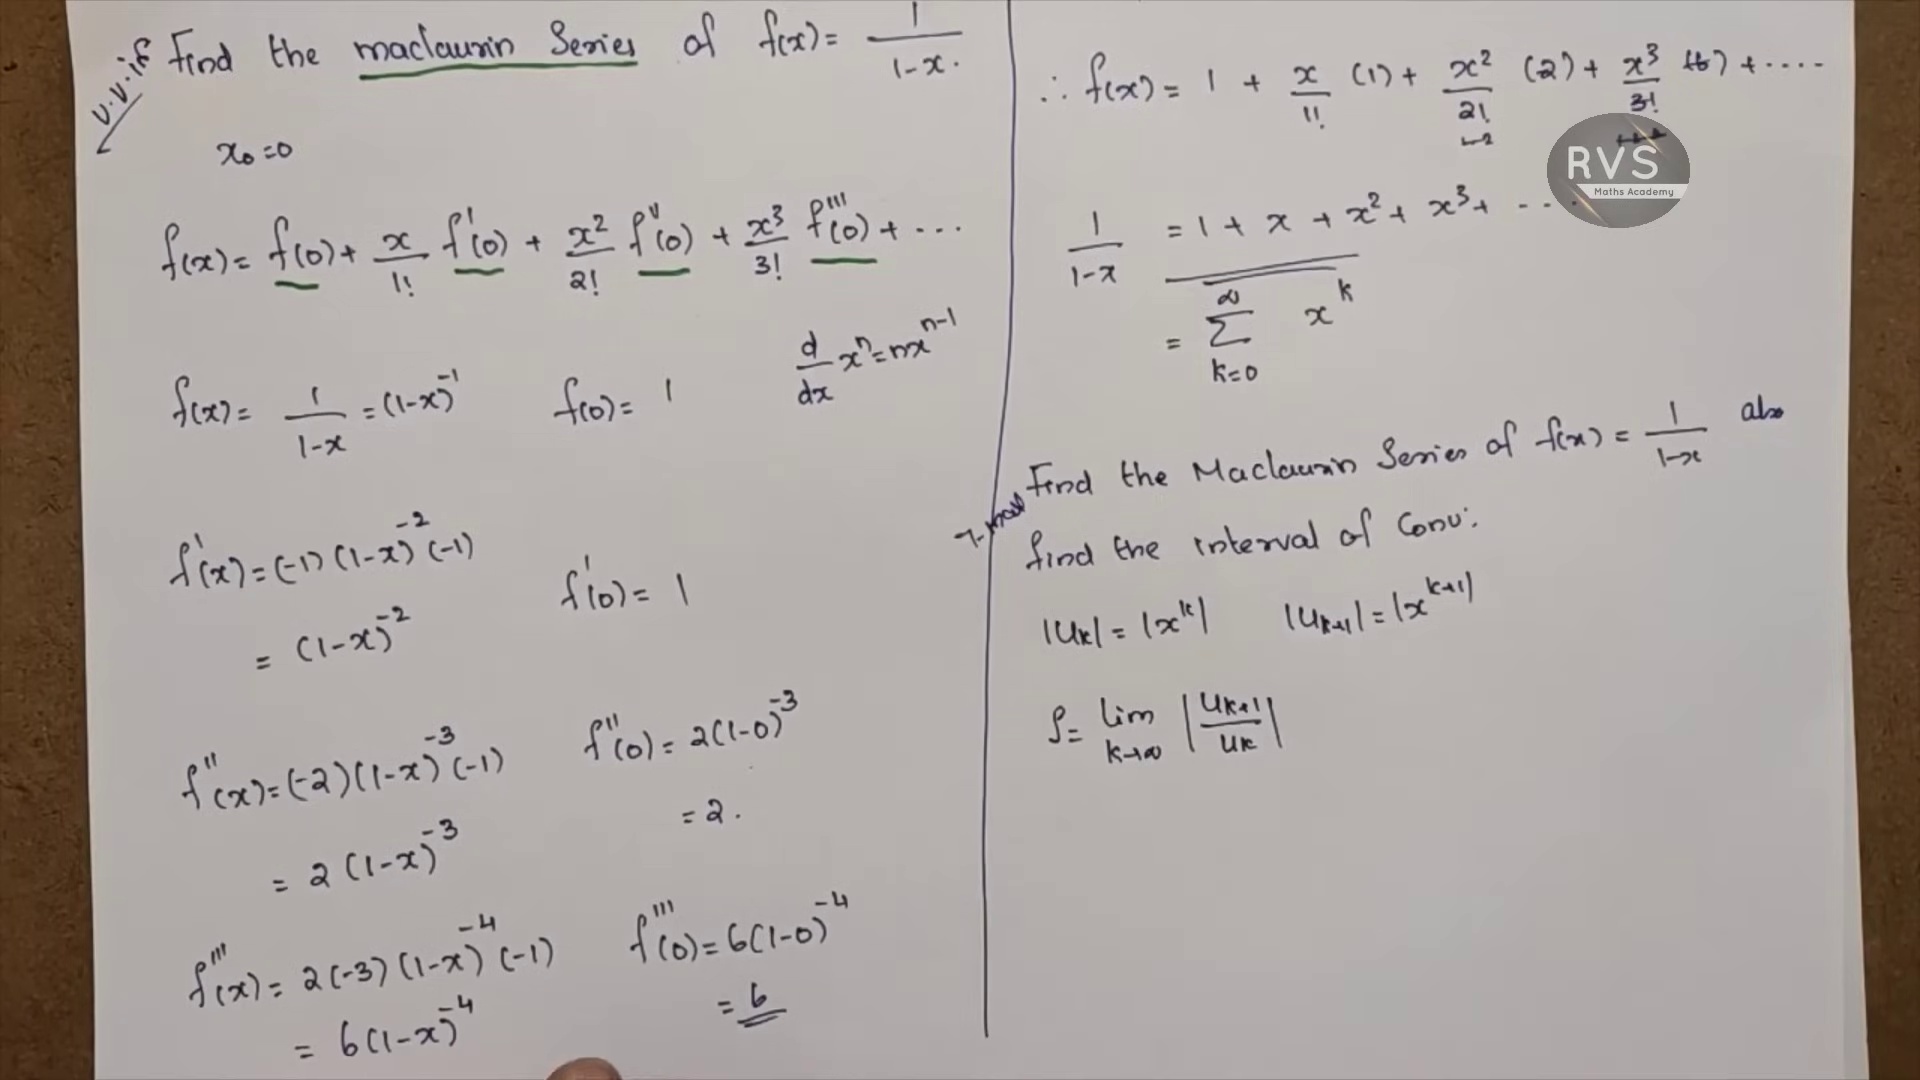 v.v.if Find the maclaurin Series of f(x) = 1/(1-x).
x₀=0
f(x) = f(0) + x/1! f'(0) + x²/2! f''(0) + x³/3! f'''(0) + ...
d/dx xⁿ = nxⁿ⁻¹
f(x) = 1/(1-x) = (1-x)⁻¹ f(0) = 1
f'(x) = (-1)(1-x)⁻²(-1) f'(0) = 1
= (1-x)⁻²
f''(x) = (-2)(1-x)⁻³(-1) f''(0) = 2(1-0)⁻³
= 2(1-x)⁻³ = 2.
f'''(x) = 2(-3)(1-x)⁻⁴(-1) f'''(0) = 6(1-0)⁻⁴
= 6(1-x)⁻⁴ = 6
∴ f(x) = 1 + x/1! (1) + x²/2! (2) + x³/3! (6) + ....
RVS
Maths Academy
1/(1-x) = 1 + x + x² + x³ + ....
= ∞ Σ k=0 xᵏ
Find the Maclaurin Series of f(x) = 1/(1-x) also
find the interval of Conv:
|uₖ| = |xᵏ| |uₖ₊₁| = |xᵏ⁺¹|
ρ = lim k→∞ |uₖ₊₁/uₖ|